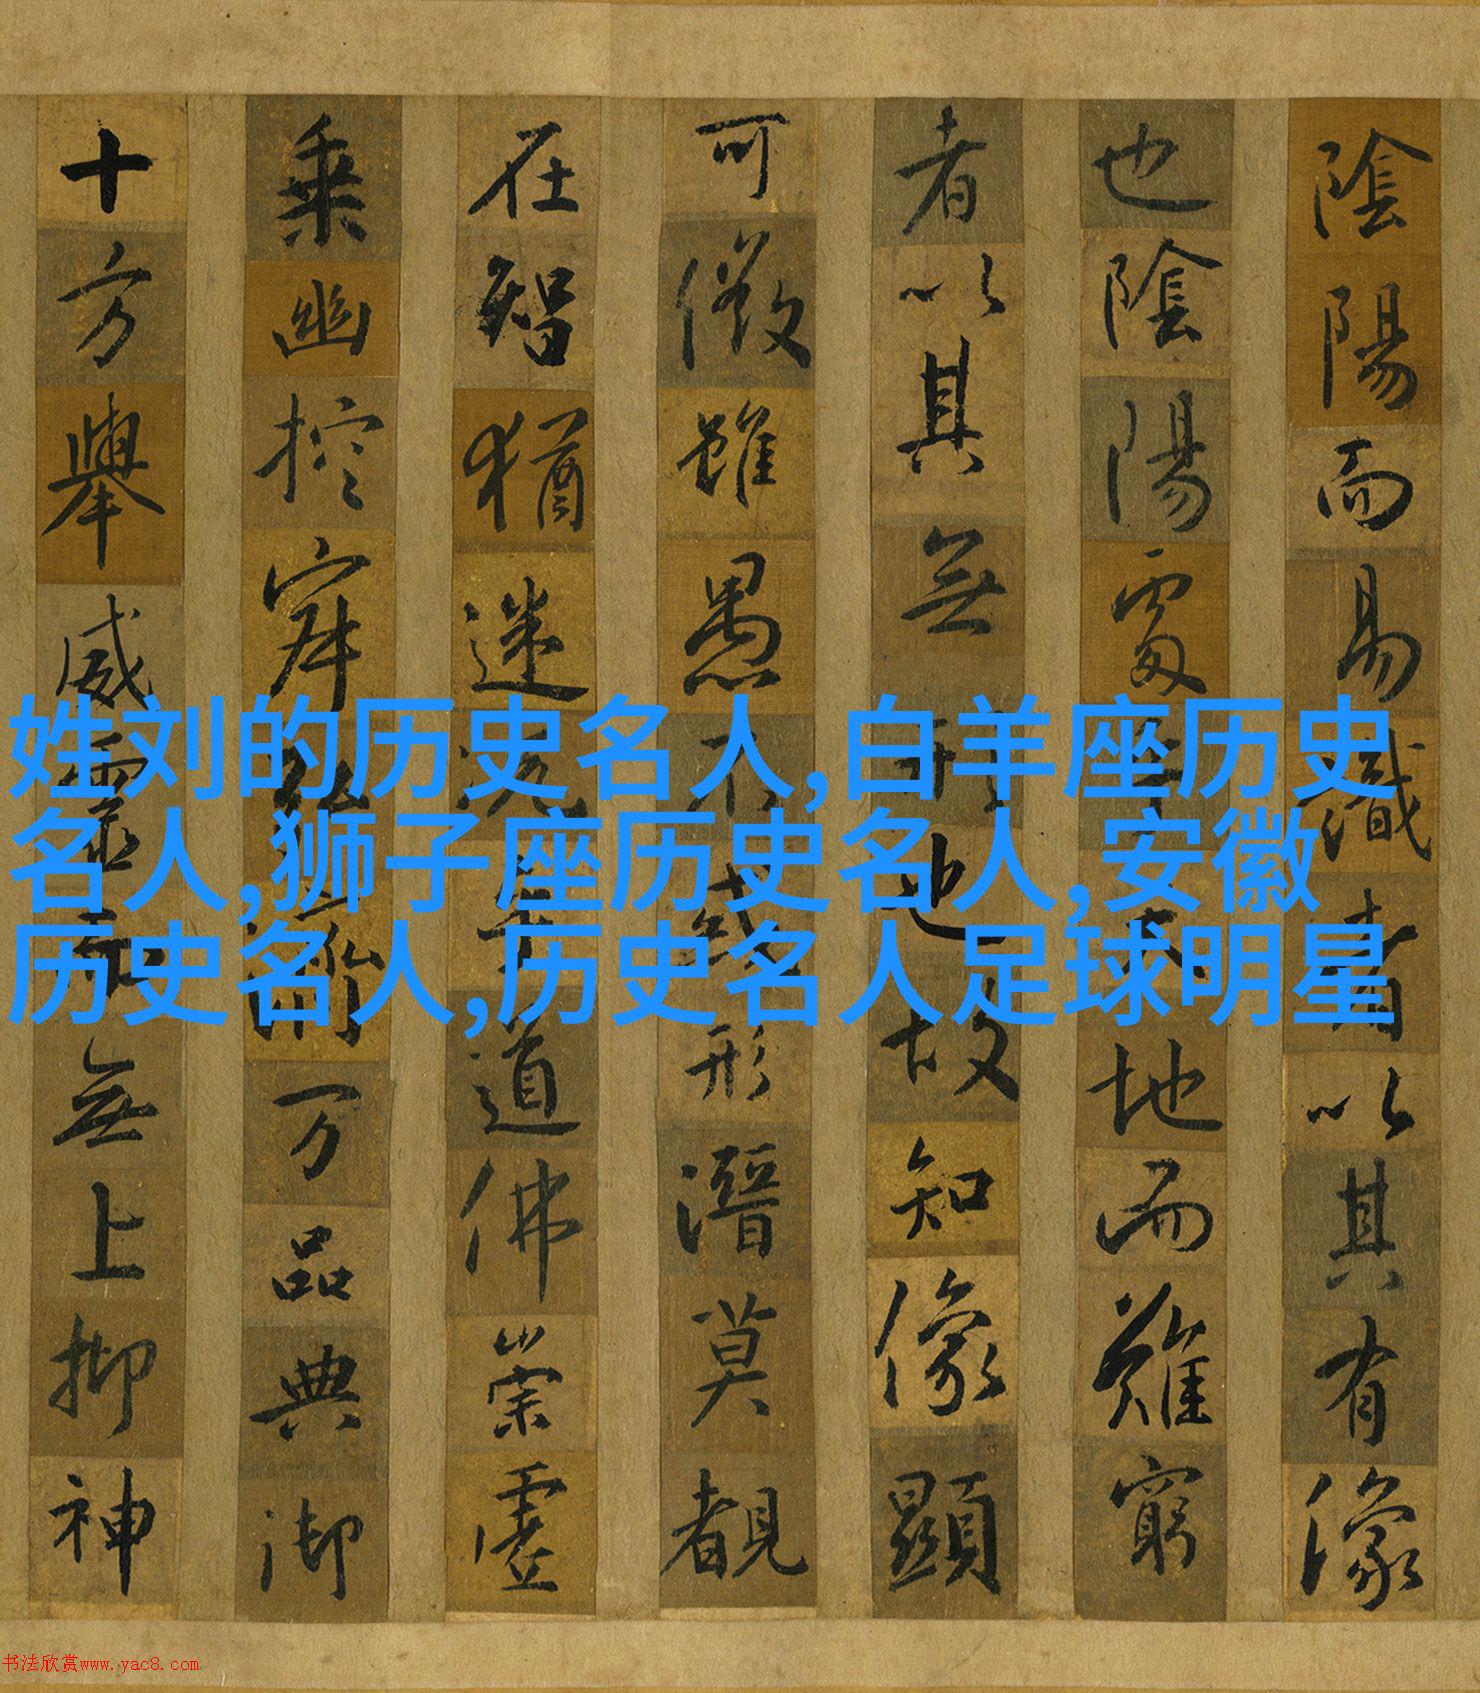 陰陽而易識者以其有像
也陰陽處乎天地而難窮
者以其無形也故知像顯
可徵雖愚不惑形潛莫覩
在智猶迷況乎道佛崇虛
乘幽控寂弘濟万品典御
十方舉威靈而無上抑神
姓刘的历史名人,白羊座历史
名人,狮子座历史名人,安徽
历史名人,历史名人足球明星
书法欣赏www.yac8.com